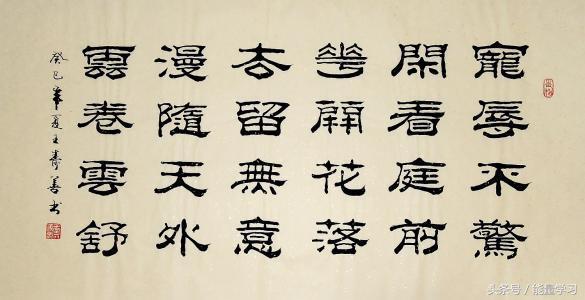 寵辱不驚
閑看庭前
華開花落
去留無意
漫隨天外
雲卷雲舒
癸巳年夏王善书
头条号／能量学习